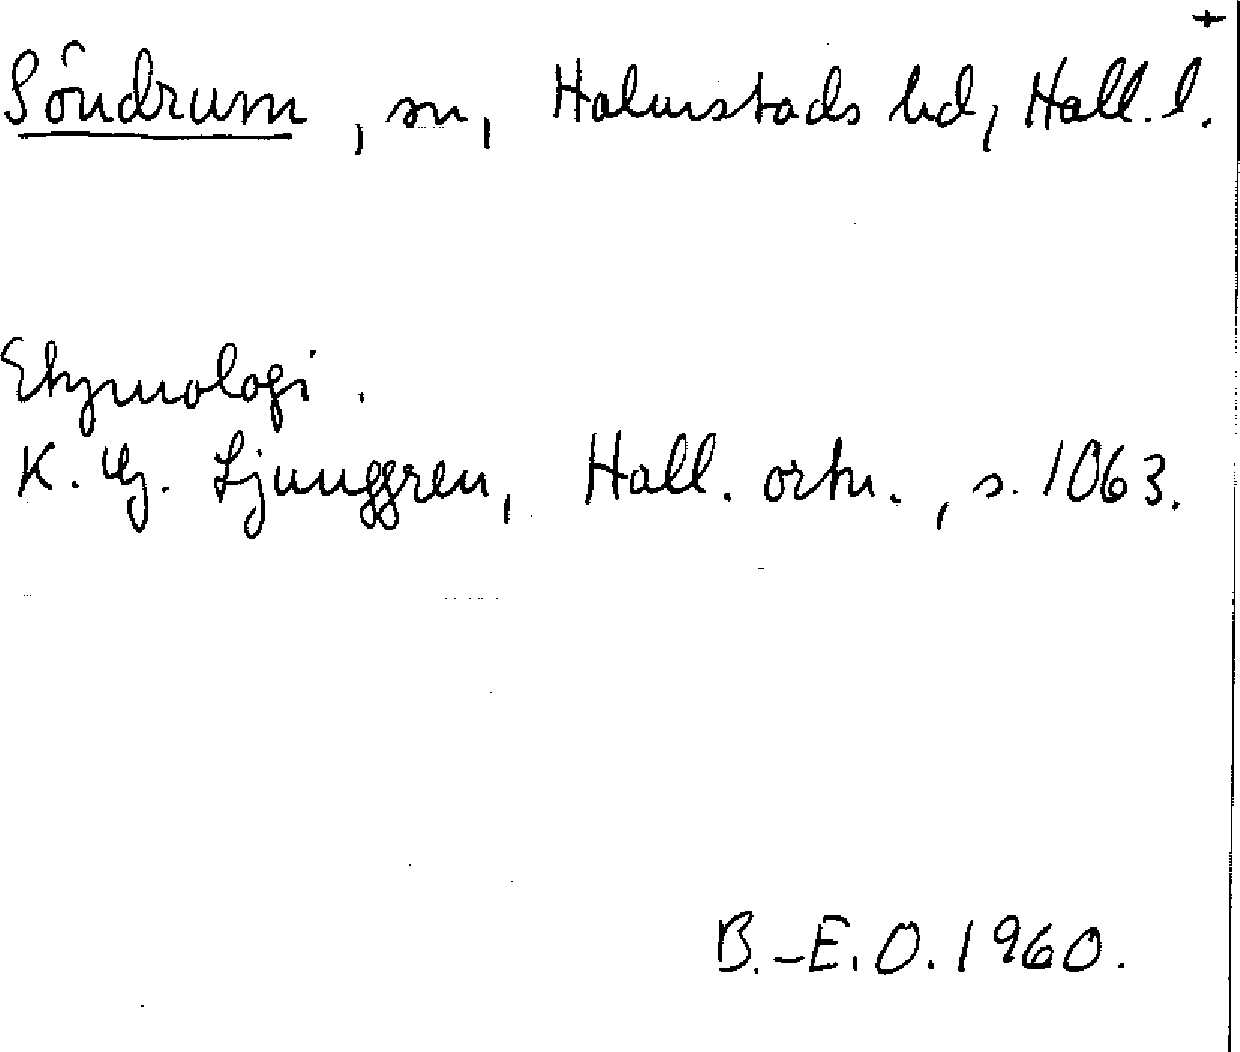 +
Söndrum, sn, Halmstads hd, Hall. l.
Etymologi.
K. G. Ljunggren, Hall. ortn., s. 1063.
B.-E. O. 1960.